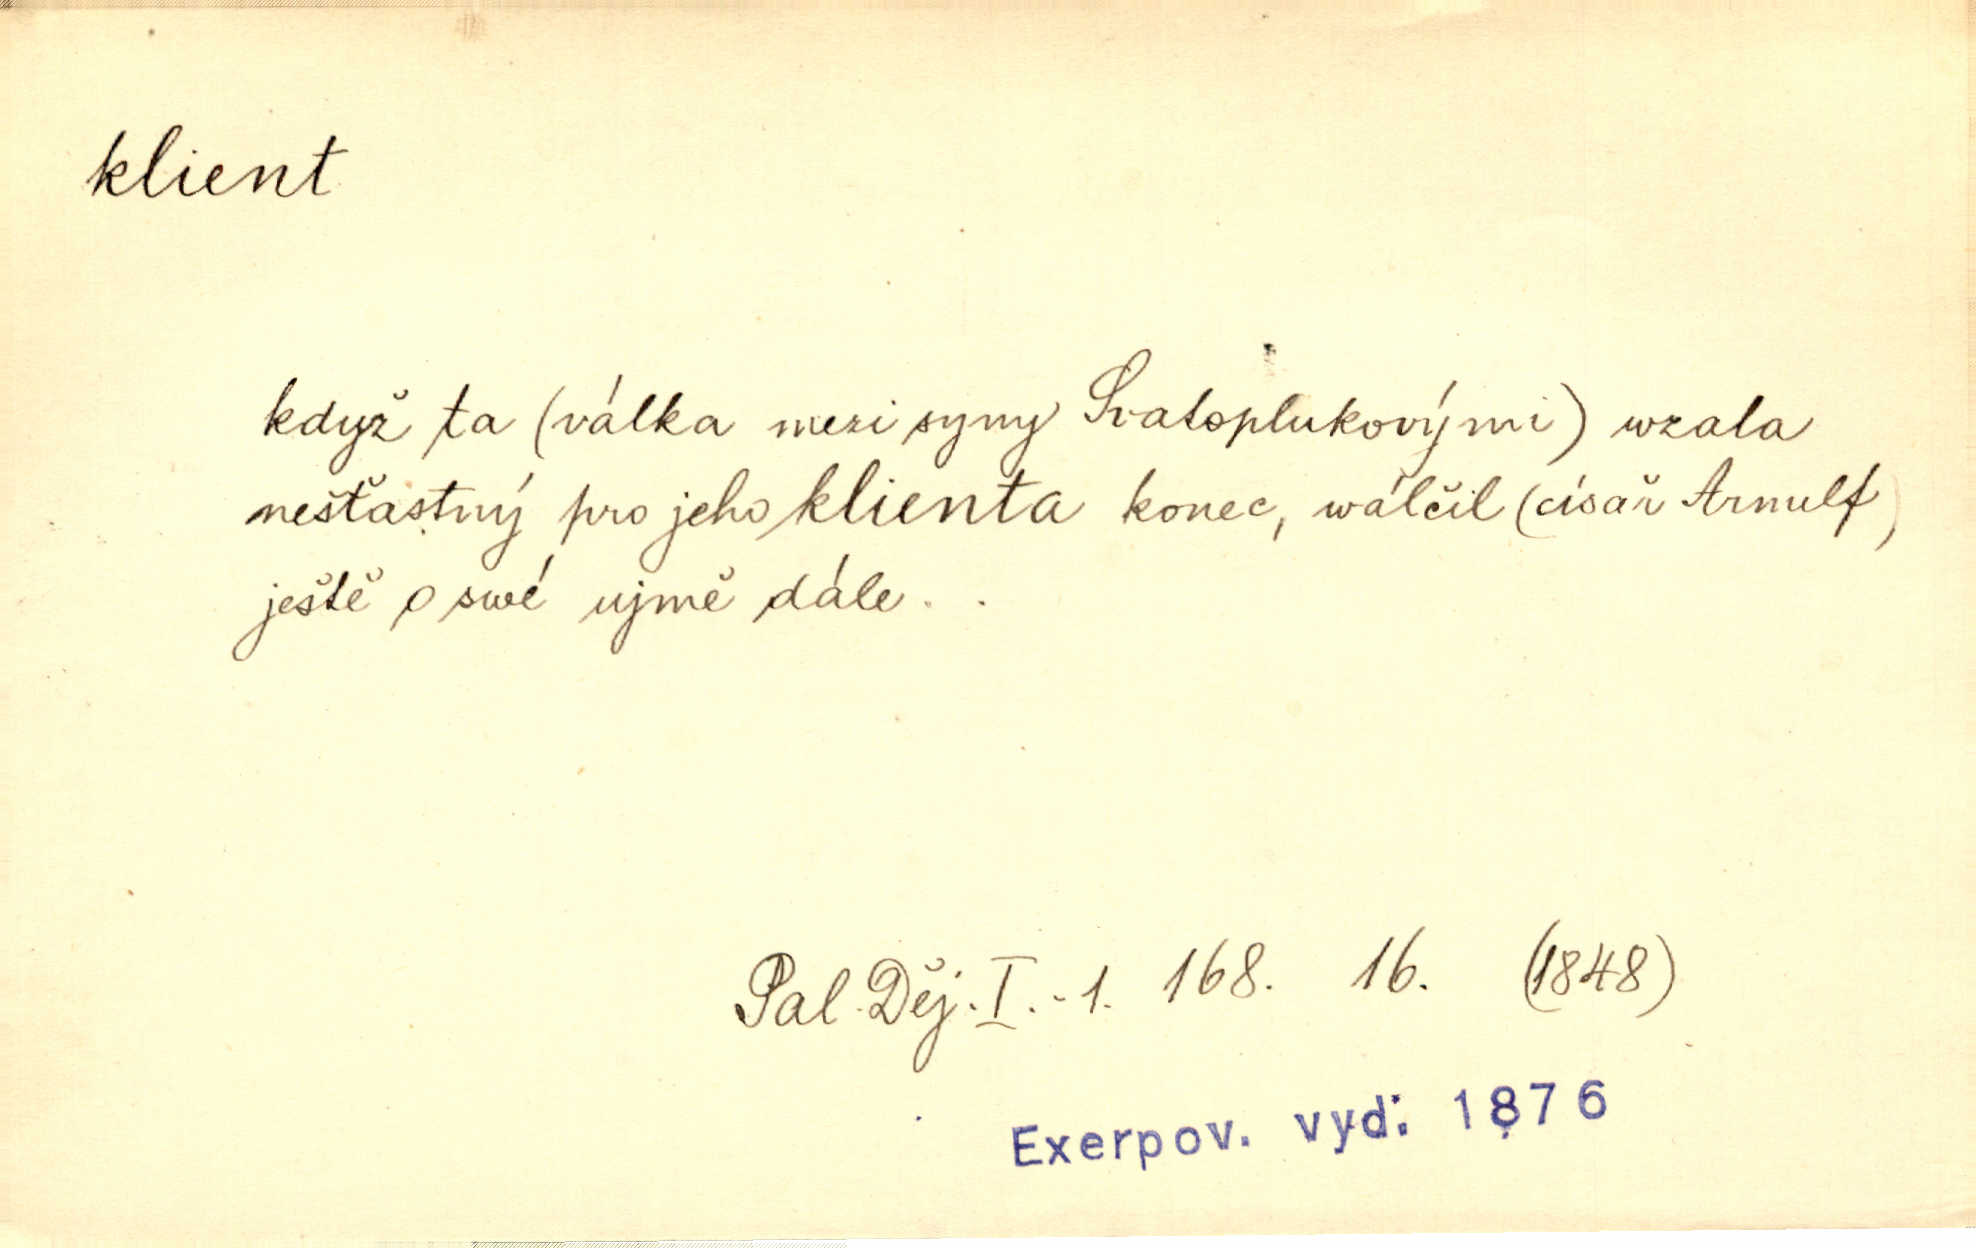 klient
když ta (válka mezi syny Svatoplukovými) wzala
nešťastný pro jeho klienta konec, wálčil (císař Arnulf)
ještě o swé ujmě dále . .
Pal. Děj. I. - 1. 168. 16. (1848)
Exerpov. vyd. 1876